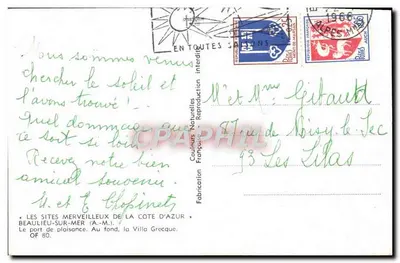 1966
ALPES MMES
EN TOUTES SAISONS
Nous sommes venus
chercher le soleil et
l'avons trouvé!
Quel dommage que
ce soit si loin!
Recevez notre bien
amical souvenir
M. et E. Chopinet
M et Mme Gibault
rue de Noisy le Sec
93 Les Lilas
Couleurs Naturelles
Fabrication Française - Reproduction interdite
CPAPHIL.COM
• LES SITES MERVEILLEUX DE LA COTE D'AZUR •
BEAULIEU-SUR-MER (A.-M.).
Le port de plaisance. Au fond, la Villa Grecque.
OF 80.